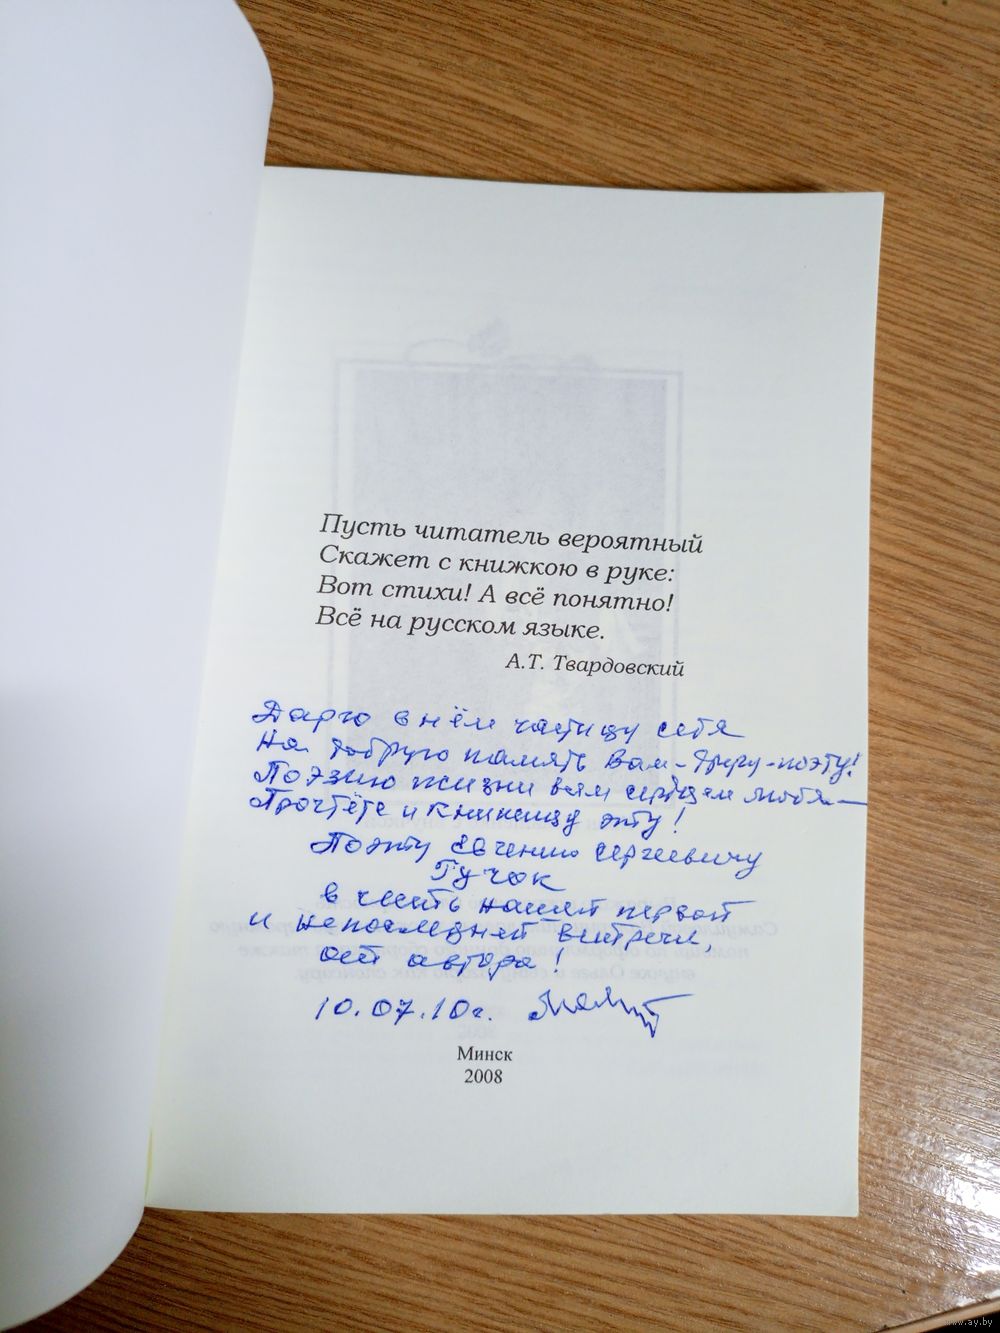 Пусть читатель вероятный
Скажет с книжкою в руке:
Вот стихи! А всё понятно!
Всё на русском языке.
А.Т. Твардовский
Дарю в нём частицу себя
На добрую память Вам – другу-поэту!
Поэзию жизни всем сердцем любя –
Прочтёте и книжицу эту!
Поэту Евгению Сергеевичу
Гучок
в честь нашей первой
и непоследней встречи,
от автора!
10.07.10г.
Минск
2008
www.ay.by